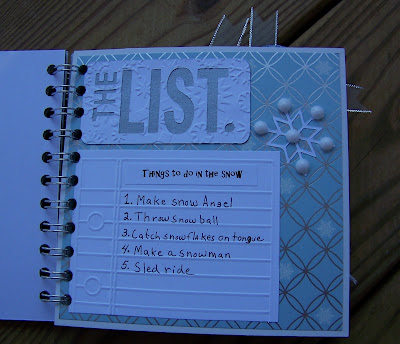 THE LIST.
Things to do in the snow
1. Make snow Angel
2. Throw snowball
3. Catch snowflakes on tongue
4. Make a snowman
5. Sled ride